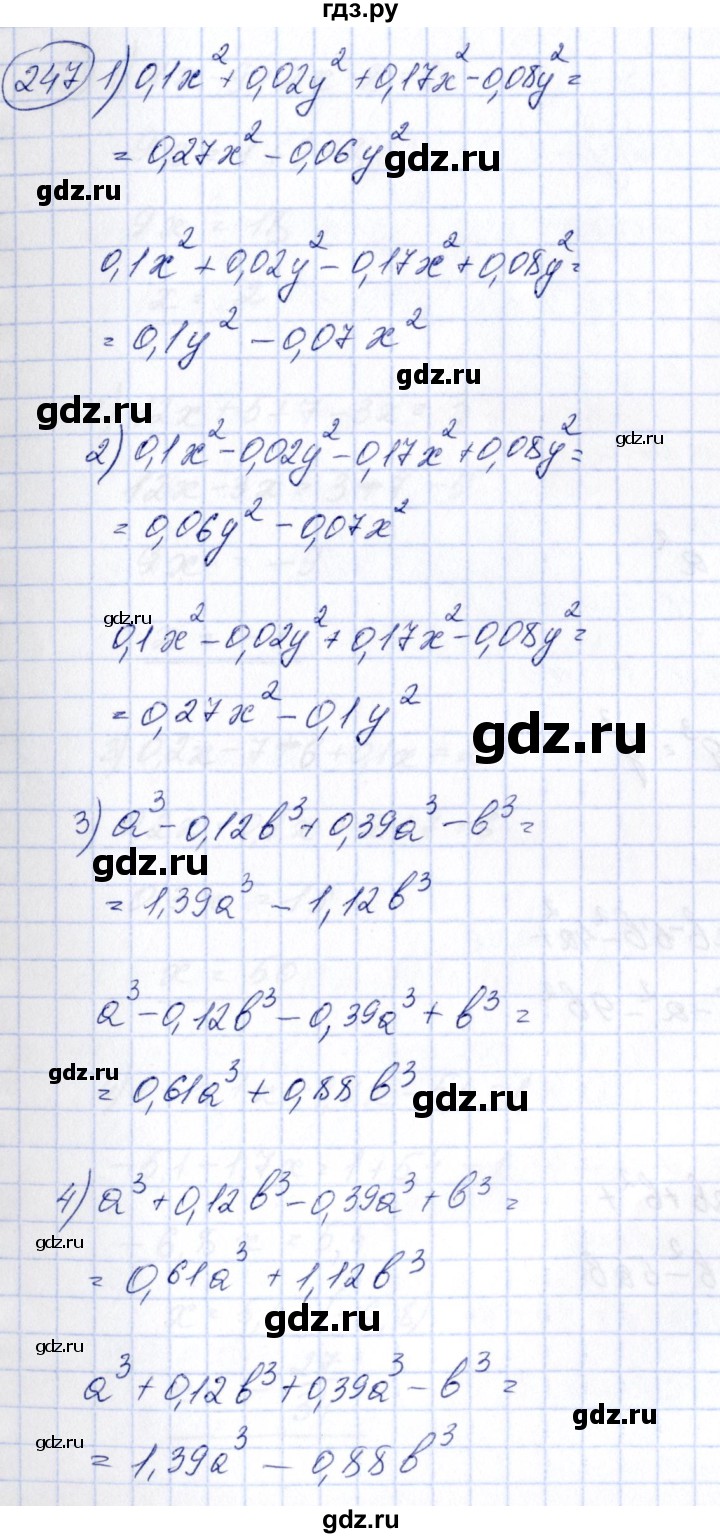 гдз.ру
247 1) 0,1x² + 0,02y² + 0,17x² - 0,08y² =
= 0,27x² - 0,06y²
gdz.ru
gdz.ru
0,1x² + 0,02y² - 0,17x² + 0,08y² =
= 0,1y² - 0,07x²
gdz.ru
gdz.ru
2) 0,1x² - 0,02y² - 0,17x² + 0,08y² =
gdz.ru
= 0,06y² - 0,07x²
gdz.ru
0,1x² - 0,02y² + 0,17x² - 0,08y² =
= 0,27x² - 0,1y²
gdz.ru
3) a³ - 0,12b³ + 0,39a³ - b³ =
gdz.ru
= 1,39a³ - 1,12b³
a³ - 0,12b³ - 0,39a³ + b³ =
gdz.ru
= 0,61a³ + 0,88b³
gdz.ru
4) a³ + 0,12b³ - 0,39a³ + b³ =
gdz.ru
= 0,61a³ + 1,12b³
gdz.ru
gdz.ru
a³ + 0,12b³ + 0,39a³ - b³ =
gdz.ru
gdz.ru
= 1,39a³ - 0,88b³
gdz.ru